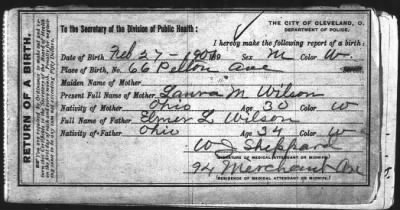 THE CITY OF CLEVELAND, O.
DEPARTMENT OF POLICE.
To the Secretary of the Division of Public Health:
I hereby make the following report of a birth:
Date of Birth Feb 27-1906 Sex M Color W.
Place of Birth, No. 66 Pelton Ave
Maiden Name of Mother
Present Full Name of Mother Laura M Wilson
Nativity of Mother Ohio Age 30 Color W
Full Name of Father Elmer L Wilson
Nativity of Father Ohio Age 34 Color W
W J Sheppard
(SIGNATURE OF MEDICAL ATTENDANT OR MIDWIFE.)
94 Merchant Ave
(RESIDENCE OF MEDICAL ATTENDANT OR MIDWIFE.)
RETURN OF A BIRTH.